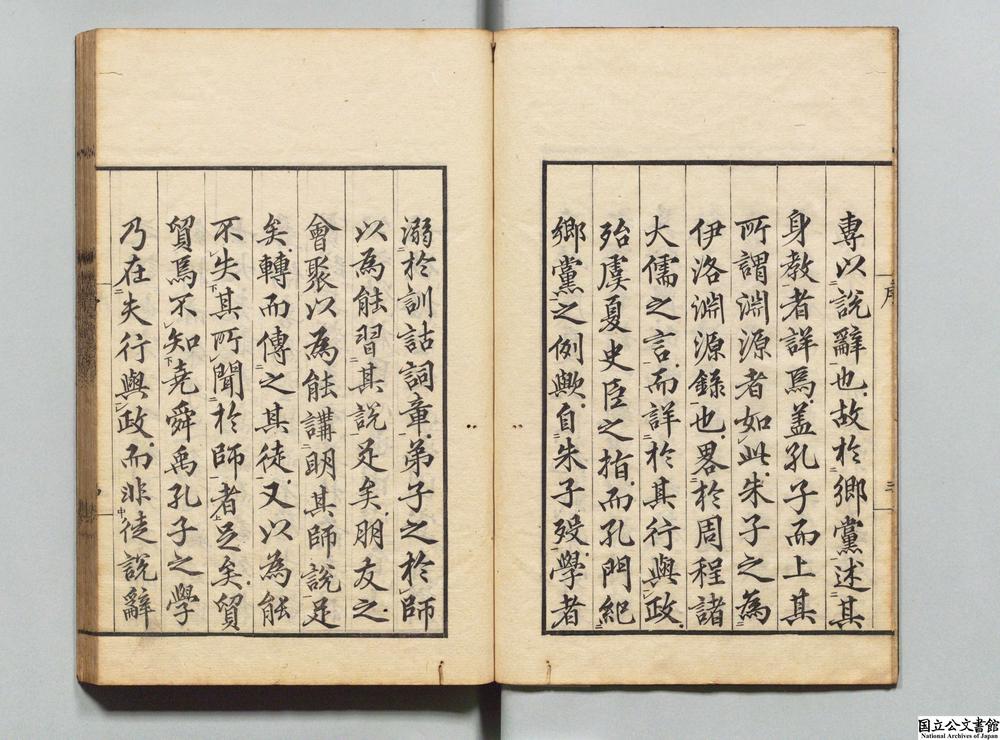 專以說辭也故於鄉黨述其
身教者詳焉盖孔子而上其
所謂淵源者如此朱子之為
伊洛淵源錄也畧於周程諸
大儒之言而詳於其行與政
殆虞夏史臣之指而孔門紀
鄉黨之例歟自朱子歿學者
溺於訓詁詞章弟子之於師
以為能習其說足矣朋友之
會聚以為能講明其師說足
矣轉而傳之其徒又以為能
不失其所聞於師者足矣貿
貿焉不知堯舜禹孔子之學
乃在夫行與政而非徒說辭
序
国立公文書館
National Archives of Japan